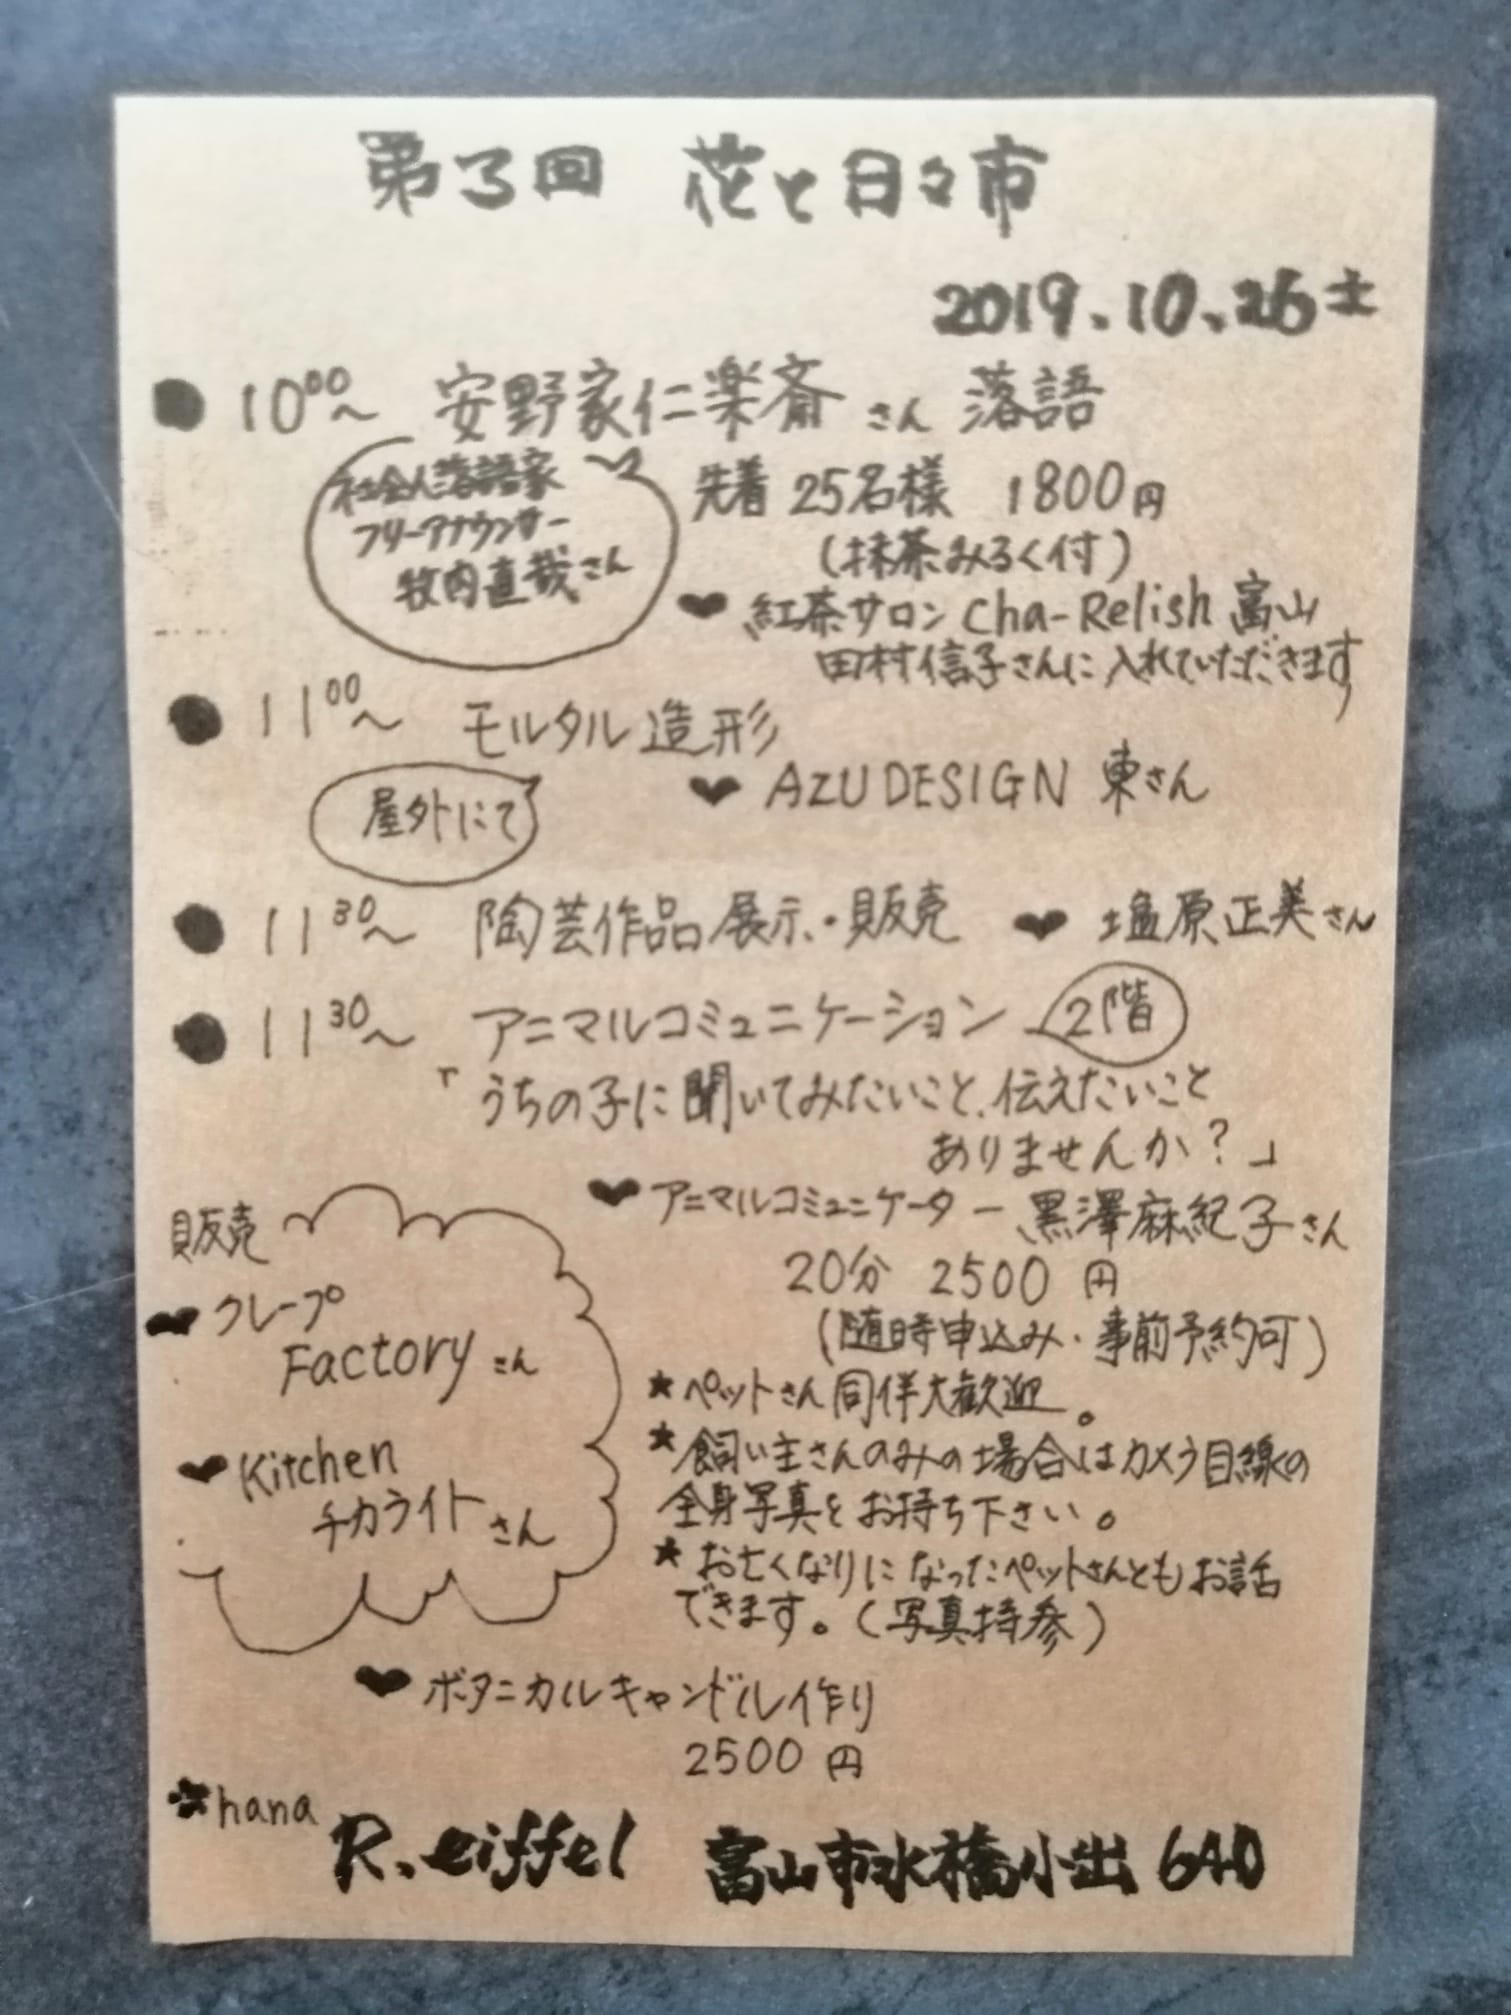 第3回 花と日々市
2019.10.26土
● 10:00〜 安野家仁楽斎さん 落語
社会人落語家
フリーアナウンサー
牧内直哉さん
先着 25名様 1800円
(抹茶みるく付)
♥ 紅茶サロン Cha-Relish 富山
田村信子さんに入れていただきます
● 11:00〜 モルタル造形
屋外にて
♥ AZU DESIGN 東さん
● 11:30〜 陶芸作品展示・販売 ♥ 塩原正美さん
● 11:30〜 アニマルコミュニケーション 2階
「うちの子に聞いてみたいこと、伝えたいこと
ありませんか?」
♥ アニマルコミュニケーター 黒澤麻紀子さん
20分 2500円
(随時申込み・事前予約可)
★ペットさん同伴大歓迎。
★飼い主さんのみの場合はカメラ目線の
全身写真をお持ち下さい。
★お亡くなりになったペットさんともお話
できます。(写真持参)
販売
♥ クレープ
Factoryさん
♥ Kitchen
チカライトさん
♥ ボタニカルキャンドル作り
2500円
hana
R.eiffel 富山市水橋小出640